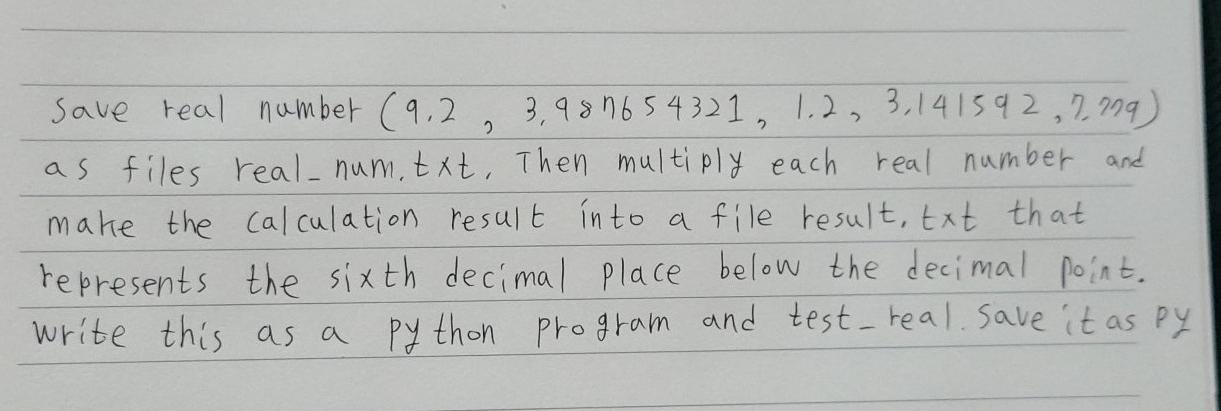 Save real number (9.2, 3.987654321, 1.2, 3.141592, 7.779)
as files real_num.txt. Then multiply each real number and
make the calculation result into a file result.txt that
represents the sixth decimal place below the decimal point.
write this as a python program and test_real. Save it as py